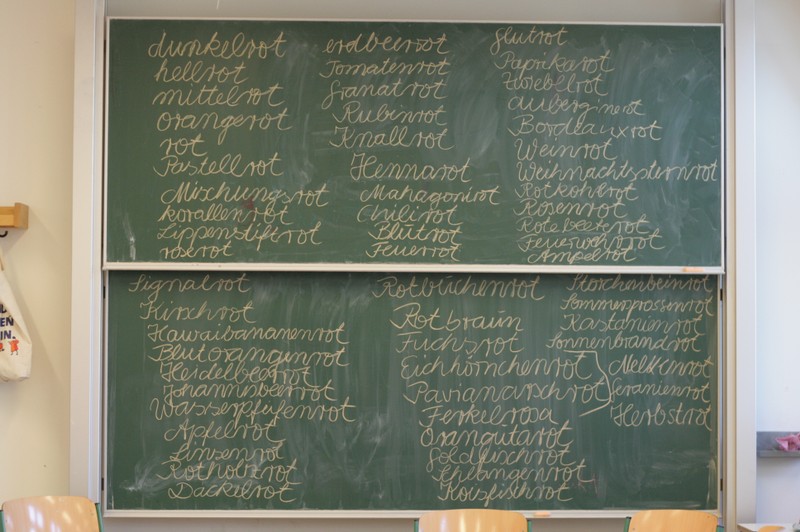 dunkelrot
hellrot
mittelrot
orangerot
rot
Pastellrot
Mischungsrot
korallenrot
Lippenstiftrot
rosarot
erdbeerrot
Tomatenrot
Granatrot
Rubinrot
Knallrot
Hennarot
Mahagonirot
Chilirot
Blutrot
Feuerrot
Glutrot
Paprikarot
Zwiebelrot
auberginerot
Bordeauxrot
Weinrot
Weihnachtssternrot
Rotkohlrot
Rosenrot
Rote beeterot
Feuerwehrrot
Ampelrot
Signalrot
Kirschrot
Hawaibananenrot
Blutorangenrot
Heidelbeerot
Johannisbeerrot
Wasserpfufenrot
Apfelrot
Linsenrot
Rotholzrot
Dackelrot
Rotbüchenrot
Rotbraun
Fuchsrot
Eichhörnchenrot
Pavianarschrot
Ferkelrosa
Orangutarot
Goldfischrot
Schlangenrot
Koisfischrot
Storchenbeinrot
Sommersprossenrot
Kastanienrot
Sonnenbrandrot
Nelkenrot
Geranienrot
Herbstrot
EN
IN.